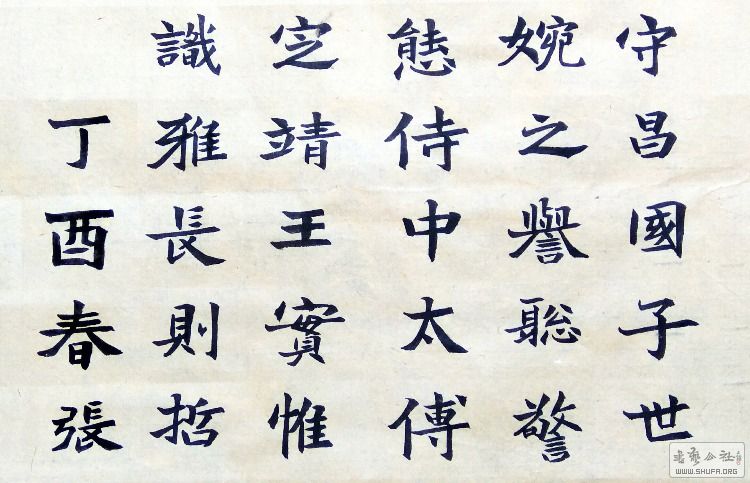 守昌國子世
婉之譽聡警
態侍中太傅
㝎靖王實惟
識雅長則哲
丁酉春張
WWW.SHUFA.ORG